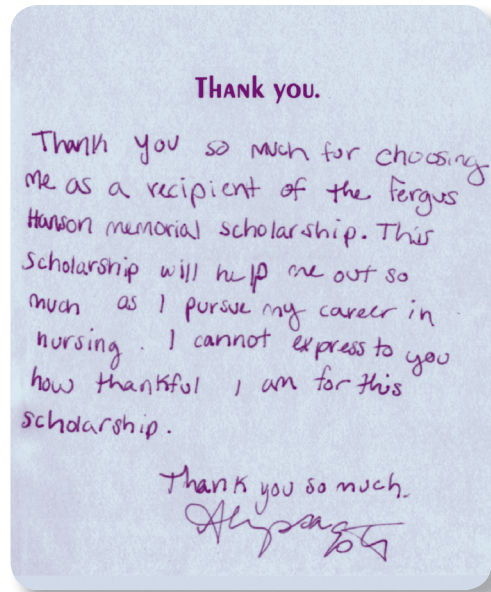 Thank you.
Thank you so much for choosing
me as a recipient of the Fergus
Hanson memorial scholarship. This
scholarship will help me out so
much as I pursue my career in
nursing. I cannot express to you
how thankful I am for this
scholarship.
Thank you so much.